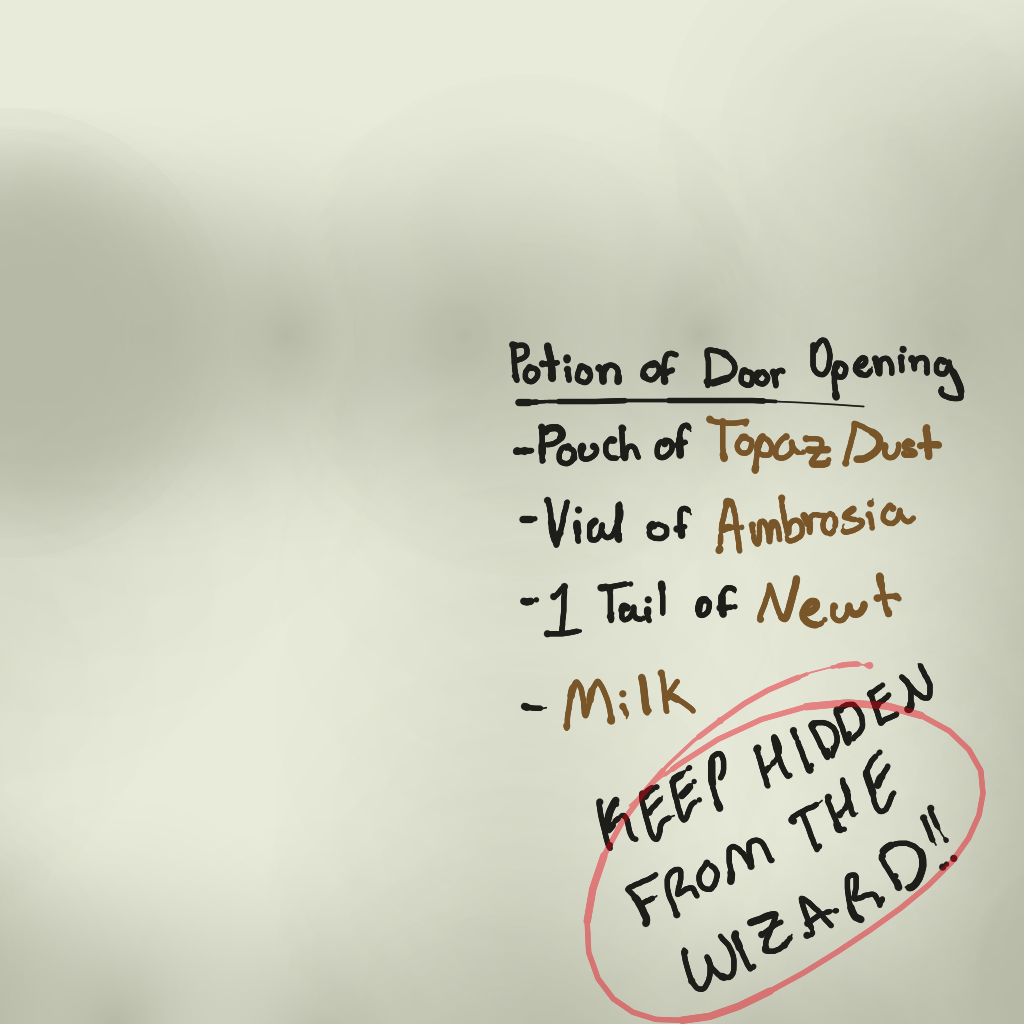 Potion of Door Opening
- Pouch of Topaz Dust
- Vial of Ambrosia
- 1 Tail of Newt
- Milk
KEEP HIDDEN
FROM THE
WIZARD!!